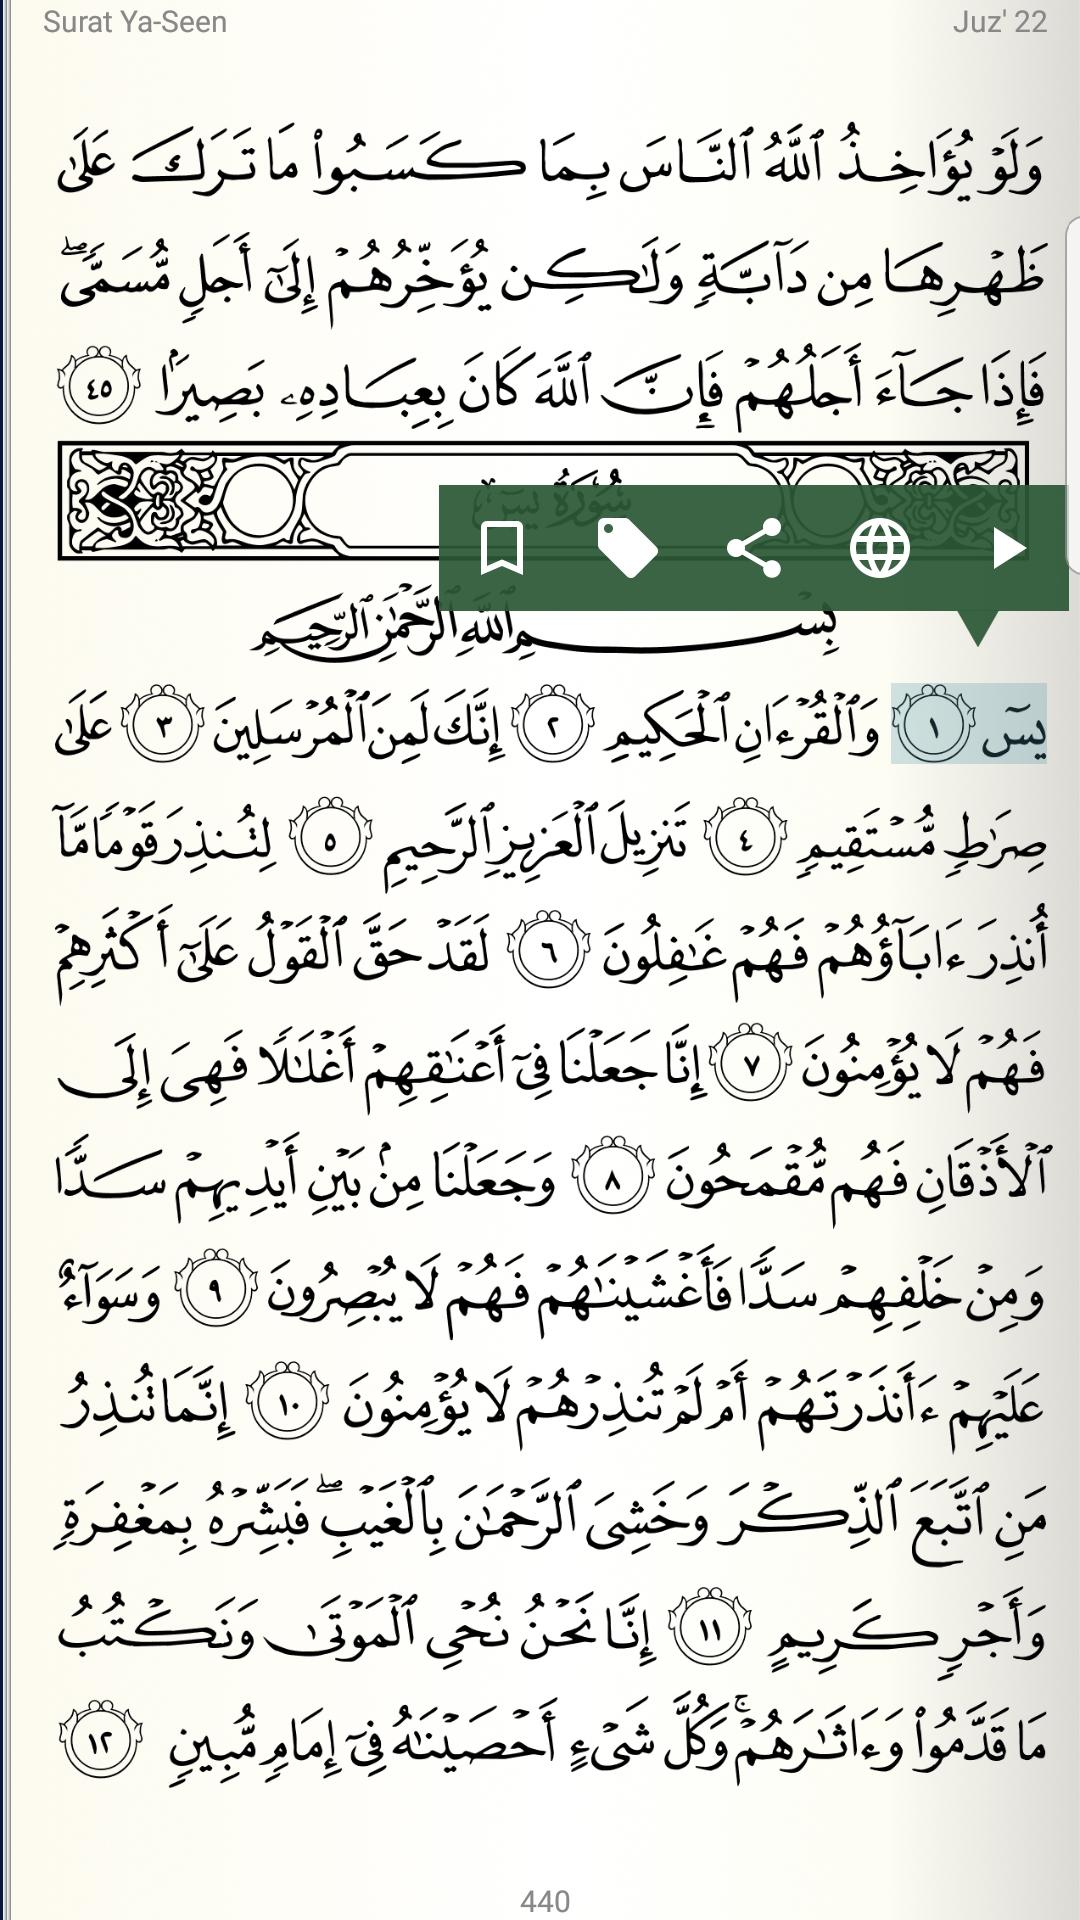 Surat Ya-Seen Juz' 22
وَلَوْ يُؤَاخِذُ ٱللَّهُ ٱلنَّاسَ بِمَا كَسَبُوا۟ مَا تَرَكَ عَلَىٰ
ظَهْرِهَا مِن دَآبَّةٍ وَلَـٰكِن يُؤَخِّرُهُمْ إِلَىٰٓ أَجَلٍ مُّسَمًّى ۖ
فَإِذَا جَآءَ أَجَلُهُمْ فَإِنَّ ٱللَّهَ كَانَ بِعِبَادِهِۦ بَصِيرًۢا ٤٥
سُورَةُ يسٓ
بِسْمِ ٱللَّهِ ٱلرَّحْمَـٰنِ ٱلرَّحِيمِ
يسٓ ١ وَٱلْقُرْءَانِ ٱلْحَكِيمِ ٢ إِنَّكَ لَمِنَ ٱلْمُرْسَلِينَ ٣ عَلَىٰ
صِرَٰطٍ مُّسْتَقِيمٍ ٤ تَنزِيلَ ٱلْعَزِيزِ ٱلرَّحِيمِ ٥ لِتُنذِرَ قَوْمًا مَّآ
أُنذِرَ ءَابَآؤُهُمْ فَهُمْ غَـٰفِلُونَ ٦ لَقَدْ حَقَّ ٱلْقَوْلُ عَلَىٰٓ أَكْثَرِهِمْ
فَهُمْ لَا يُؤْمِنُونَ ٧ إِنَّا جَعَلْنَا فِىٓ أَعْنَـٰقِهِمْ أَغْلَـٰلًا فَهِىَ إِلَى
ٱلْأَذْقَانِ فَهُم مُّقْمَحُونَ ٨ وَجَعَلْنَا مِنۢ بَيْنِ أَيْدِيهِمْ سَدًّا
وَمِنْ خَلْفِهِمْ سَدًّا فَأَغْشَيْنَـٰهُمْ فَهُمْ لَا يُبْصِرُونَ ٩ وَسَوَآءٌ
عَلَيْهِمْ ءَأَنذَرْتَهُمْ أَمْ لَمْ تُنذِرْهُمْ لَا يُؤْمِنُونَ ١٠ إِنَّمَا تُنذِرُ
مَنِ ٱتَّبَعَ ٱلذِّكْرَ وَخَشِىَ ٱلرَّحْمَـٰنَ بِٱلْغَيْبِ ۖ فَبَشِّرْهُ بِمَغْفِرَةٍ
وَأَجْرٍ كَرِيمٍ ١١ إِنَّا نَحْنُ نُحْىِ ٱلْمَوْتَىٰ وَنَكْتُبُ
مَا قَدَّمُوا۟ وَءَاثَـٰرَهُمْ ۚ وَكُلَّ شَىْءٍ أَحْصَيْنَـٰهُ فِىٓ إِمَامٍ مُّبِينٍ ١٢
440